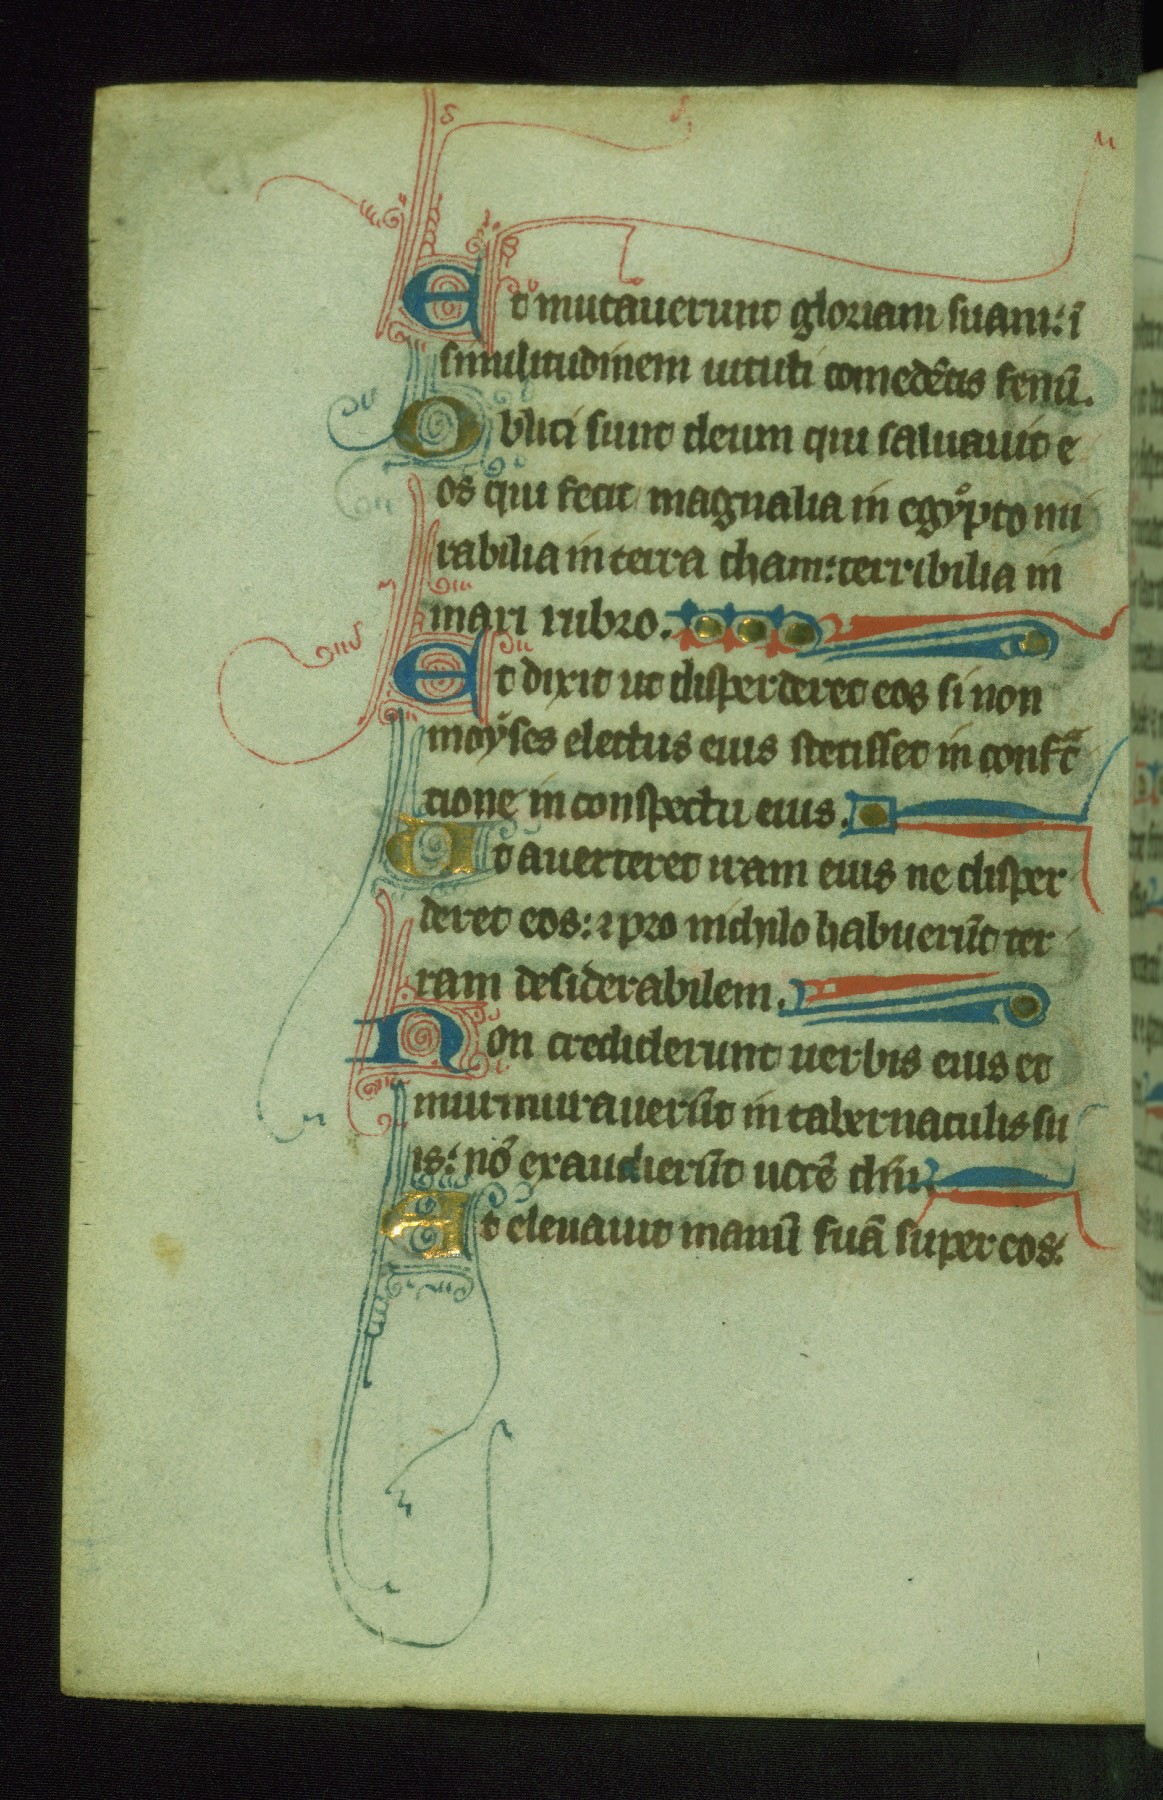 Et mutauerunt gloriam suam: ĩ
similitudinem uituli comedẽtis fenũ.
Obliti sunt deum qui saluauit e
os qui fecit magnalia in egypto mi
rabilia in terra cham: terribilia in
mari rubro.
Et dixit ut disperderet eos si non
moyses electus eius stetisset in confͣc
tione in conspectu eius.
Ut auerteret iram eius ne disper
deret eos: ⁊ pro nichilo habuerũt ter
ram desiderabilem.
Non crediderunt uerbis eius et
murmurauerũt in tabernaculis su
is: nõ exaudierũt uocẽ dñi.
Et eleuauit manũ suã super eos: